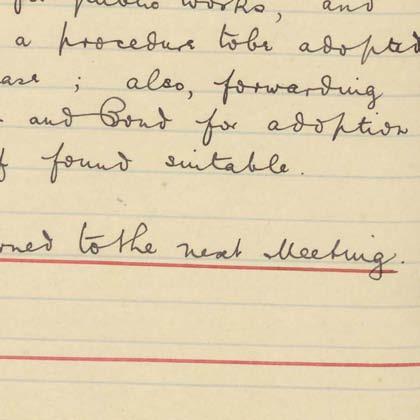 for public works, and
a procedure tobe adopted
ase ; also, forwarding
and Bond for adoption
f found suitable.
rned to the next Meeting.